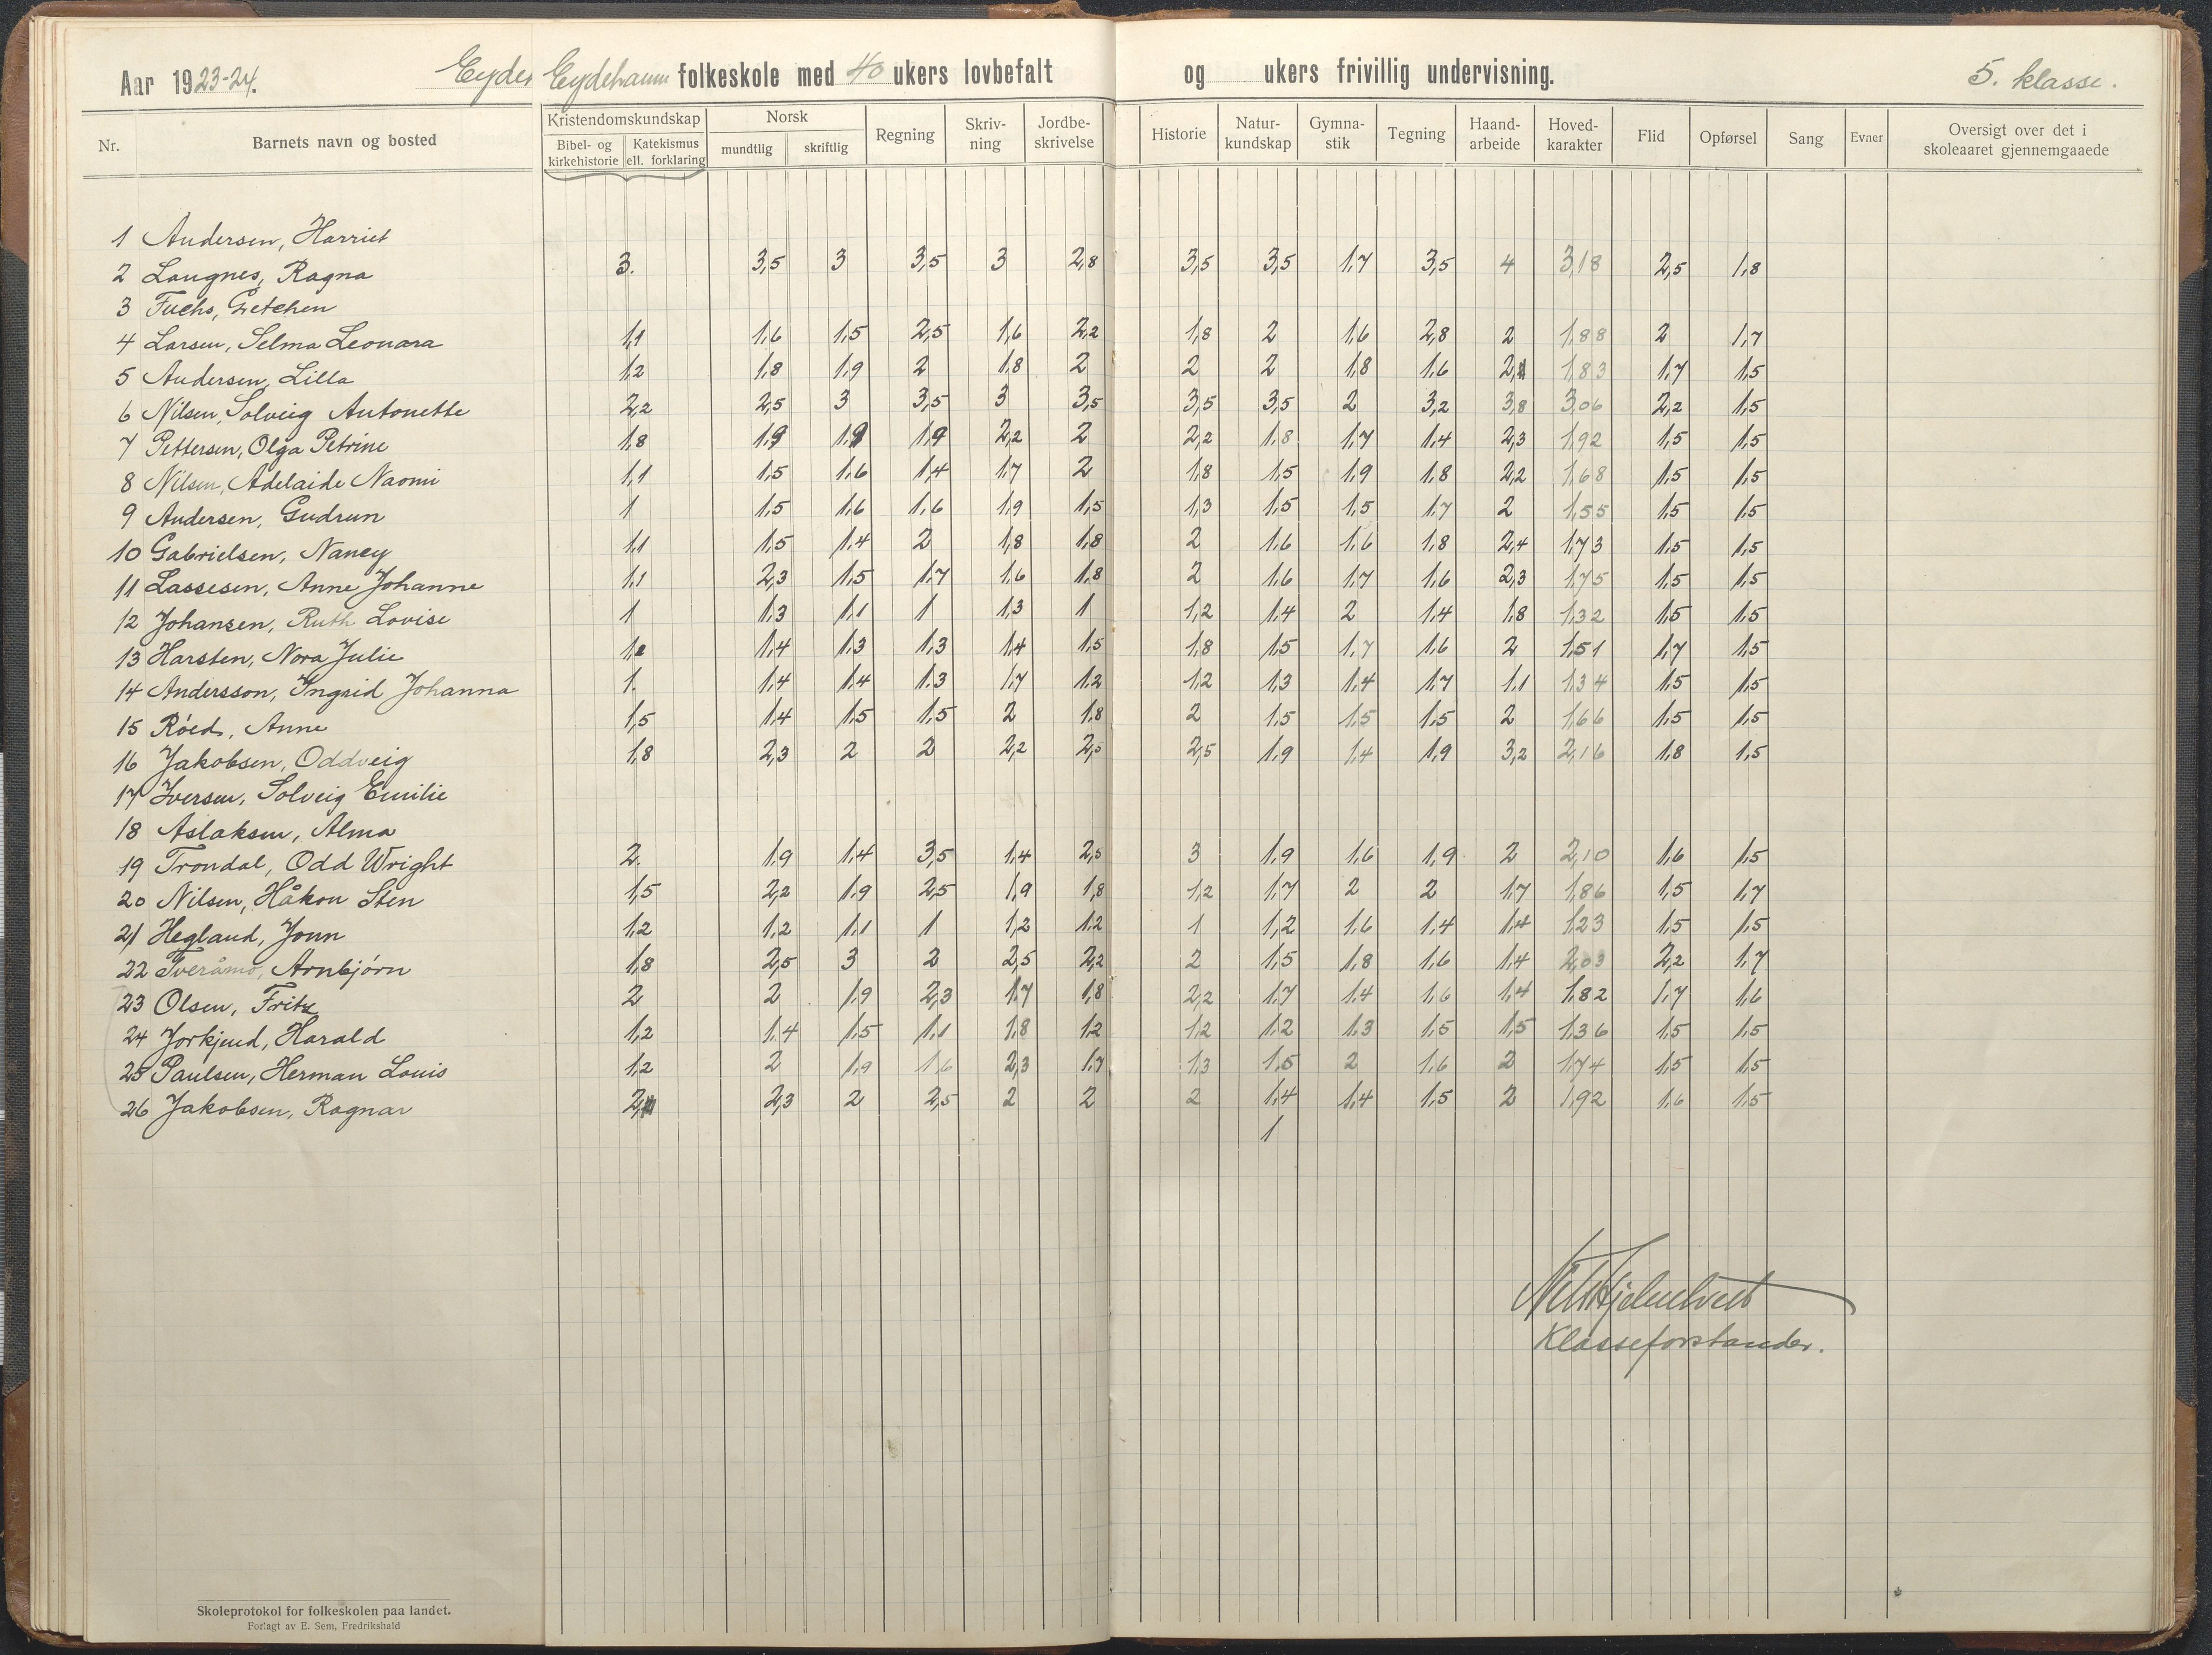 Aar 1923-24. Eyder Eydehavn folkeskole med 40 ukers lovbefalt og ukers frivillig undervisning. 5. klasse.
Nr. Barnets navn og bosted Kristendomskundskap Bibel- og kirkehistorie Katekismus ell. forklaring Norsk mundtlig skriftlig Regning Skriv-ning Jordbe-skrivelse Historie Natur-kundskap Gymna-stik Tegning Haand-arbeide Hoved-karakter Flid Opførsel Sang Evner Oversigt over det i skoleaaret gjennemgaaede
1 Andersen, Harriet
2 Langnes, Ragna 3. 3,5 3 3,5 3 2,8 3,5 3,5 1,7 3,5 4 3,18 2,5 1,8
3 Fuchs, Gretchen
4 Larsen, Selma Leonara 1,1 1,6 1,5 2,5 1,6 2,2 1,8 2 1,6 2,8 2 1,88 2 1,7
5 Andersen, Lilla 1,2 1,8 1,9 2 1,8 2 2 2 1,8 1,6 2,1 1,83 1,7 1,5
6 Nilsen, Solveig Antonette 2,2 2,5 3 3,5 3 3,5 3,5 3,5 2 3,2 3,8 3,06 2,2 1,5
7 Pettersen, Olga Petrine 1,8 1,9 1,9 1,9 2,2 2 2,2 1,8 1,7 1,4 2,3 1,92 1,5 1,5
8 Nilsen, Adelaide Naomi 1,1 1,5 1,6 1,4 1,7 2 1,8 1,5 1,9 1,8 2,2 1,68 1,5 1,5
9 Andersen, Gudrun 1 1,5 1,6 1,6 1,9 1,5 1,3 1,5 1,5 1,7 2 1,55 1,5 1,5
10 Gabrielsen, Nancy 1,1 1,5 1,4 2 1,8 1,8 2 1,6 1,6 1,8 2,4 1,73 1,5 1,5
11 Lassesen, Anne Johanne 1,1 2,3 1,5 1,7 1,6 1,8 2 1,6 1,7 1,6 2,3 1,75 1,5 1,5
12 Johansen, Ruth Lovise 1 1,3 1,1 1 1,3 1 1,2 1,4 2 1,4 1,8 1,32 1,5 1,5
13 Harsten, Nora Julie 1,2 1,4 1,3 1,3 1,4 1,5 1,8 1,5 1,7 1,6 2 1,51 1,7 1,5
14 Andersson, Yngrid Johanna 1. 1,4 1,4 1,3 1,7 1,2 1,2 1,3 1,4 1,7 1,1 1,34 1,5 1,5
15 Róed, Anne 1,5 1,4 1,5 1,5 2 1,8 2 1,5 1,5 1,5 2 1,66 1,5 1,5
16 Jakobsen, Oddveig 1,8 2,3 2 2 2,2 2,5 2,5 1,9 1,4 1,9 3,2 2,16 1,8 1,5
17 Iversen, Solveig Emilie
18 Aslaksen, Alma
19 Trondal, Odd Wright 2. 1,9 1,4 3,5 1,4 2,5 3 1,9 1,6 1,9 2 2,10 1,6 1,5
20 Nilsen, Håkon Sten 1,5 2,2 1,9 2,5 1,9 1,8 1,2 1,7 2 2 1,7 1,86 1,5 1,7
21 Hegland, Jonn 1,2 1,2 1,1 1 1,2 1,2 1 1,2 1,6 1,4 1,4 1,23 1,5 1,5
22 Tveråmo, Arnbjórn 1,8 2,5 3 2 2,5 2,2 2 1,5 1,8 1,6 1,4 2,03 2,2 1,7
23 Olsen, Fritz 2 2 1,9 2,3 1,7 1,8 2,2 1,7 1,4 1,6 1,4 1,82 1,7 1,6
24 Jorkjend, Harald 1,2 1,4 1,5 1,1 1,8 1,2 1,2 1,2 1,3 1,5 1,5 1,36 1,5 1,5
25 Paulsen, Herman Louis 1,2 2 1,9 1,6 2,3 1,7 1,3 1,5 2 1,6 2 1,74 1,5 1,5
26 Jakobsen, Ragnar 2,3 2 2,5 2 2 2 1,4 1,4 1,5 2 1,92 1,6 1,5
1
Klasseforstander.
Skoleprotokol for folkeskolen paa landet.
Forlagt av E. Sem, Fredrikshald